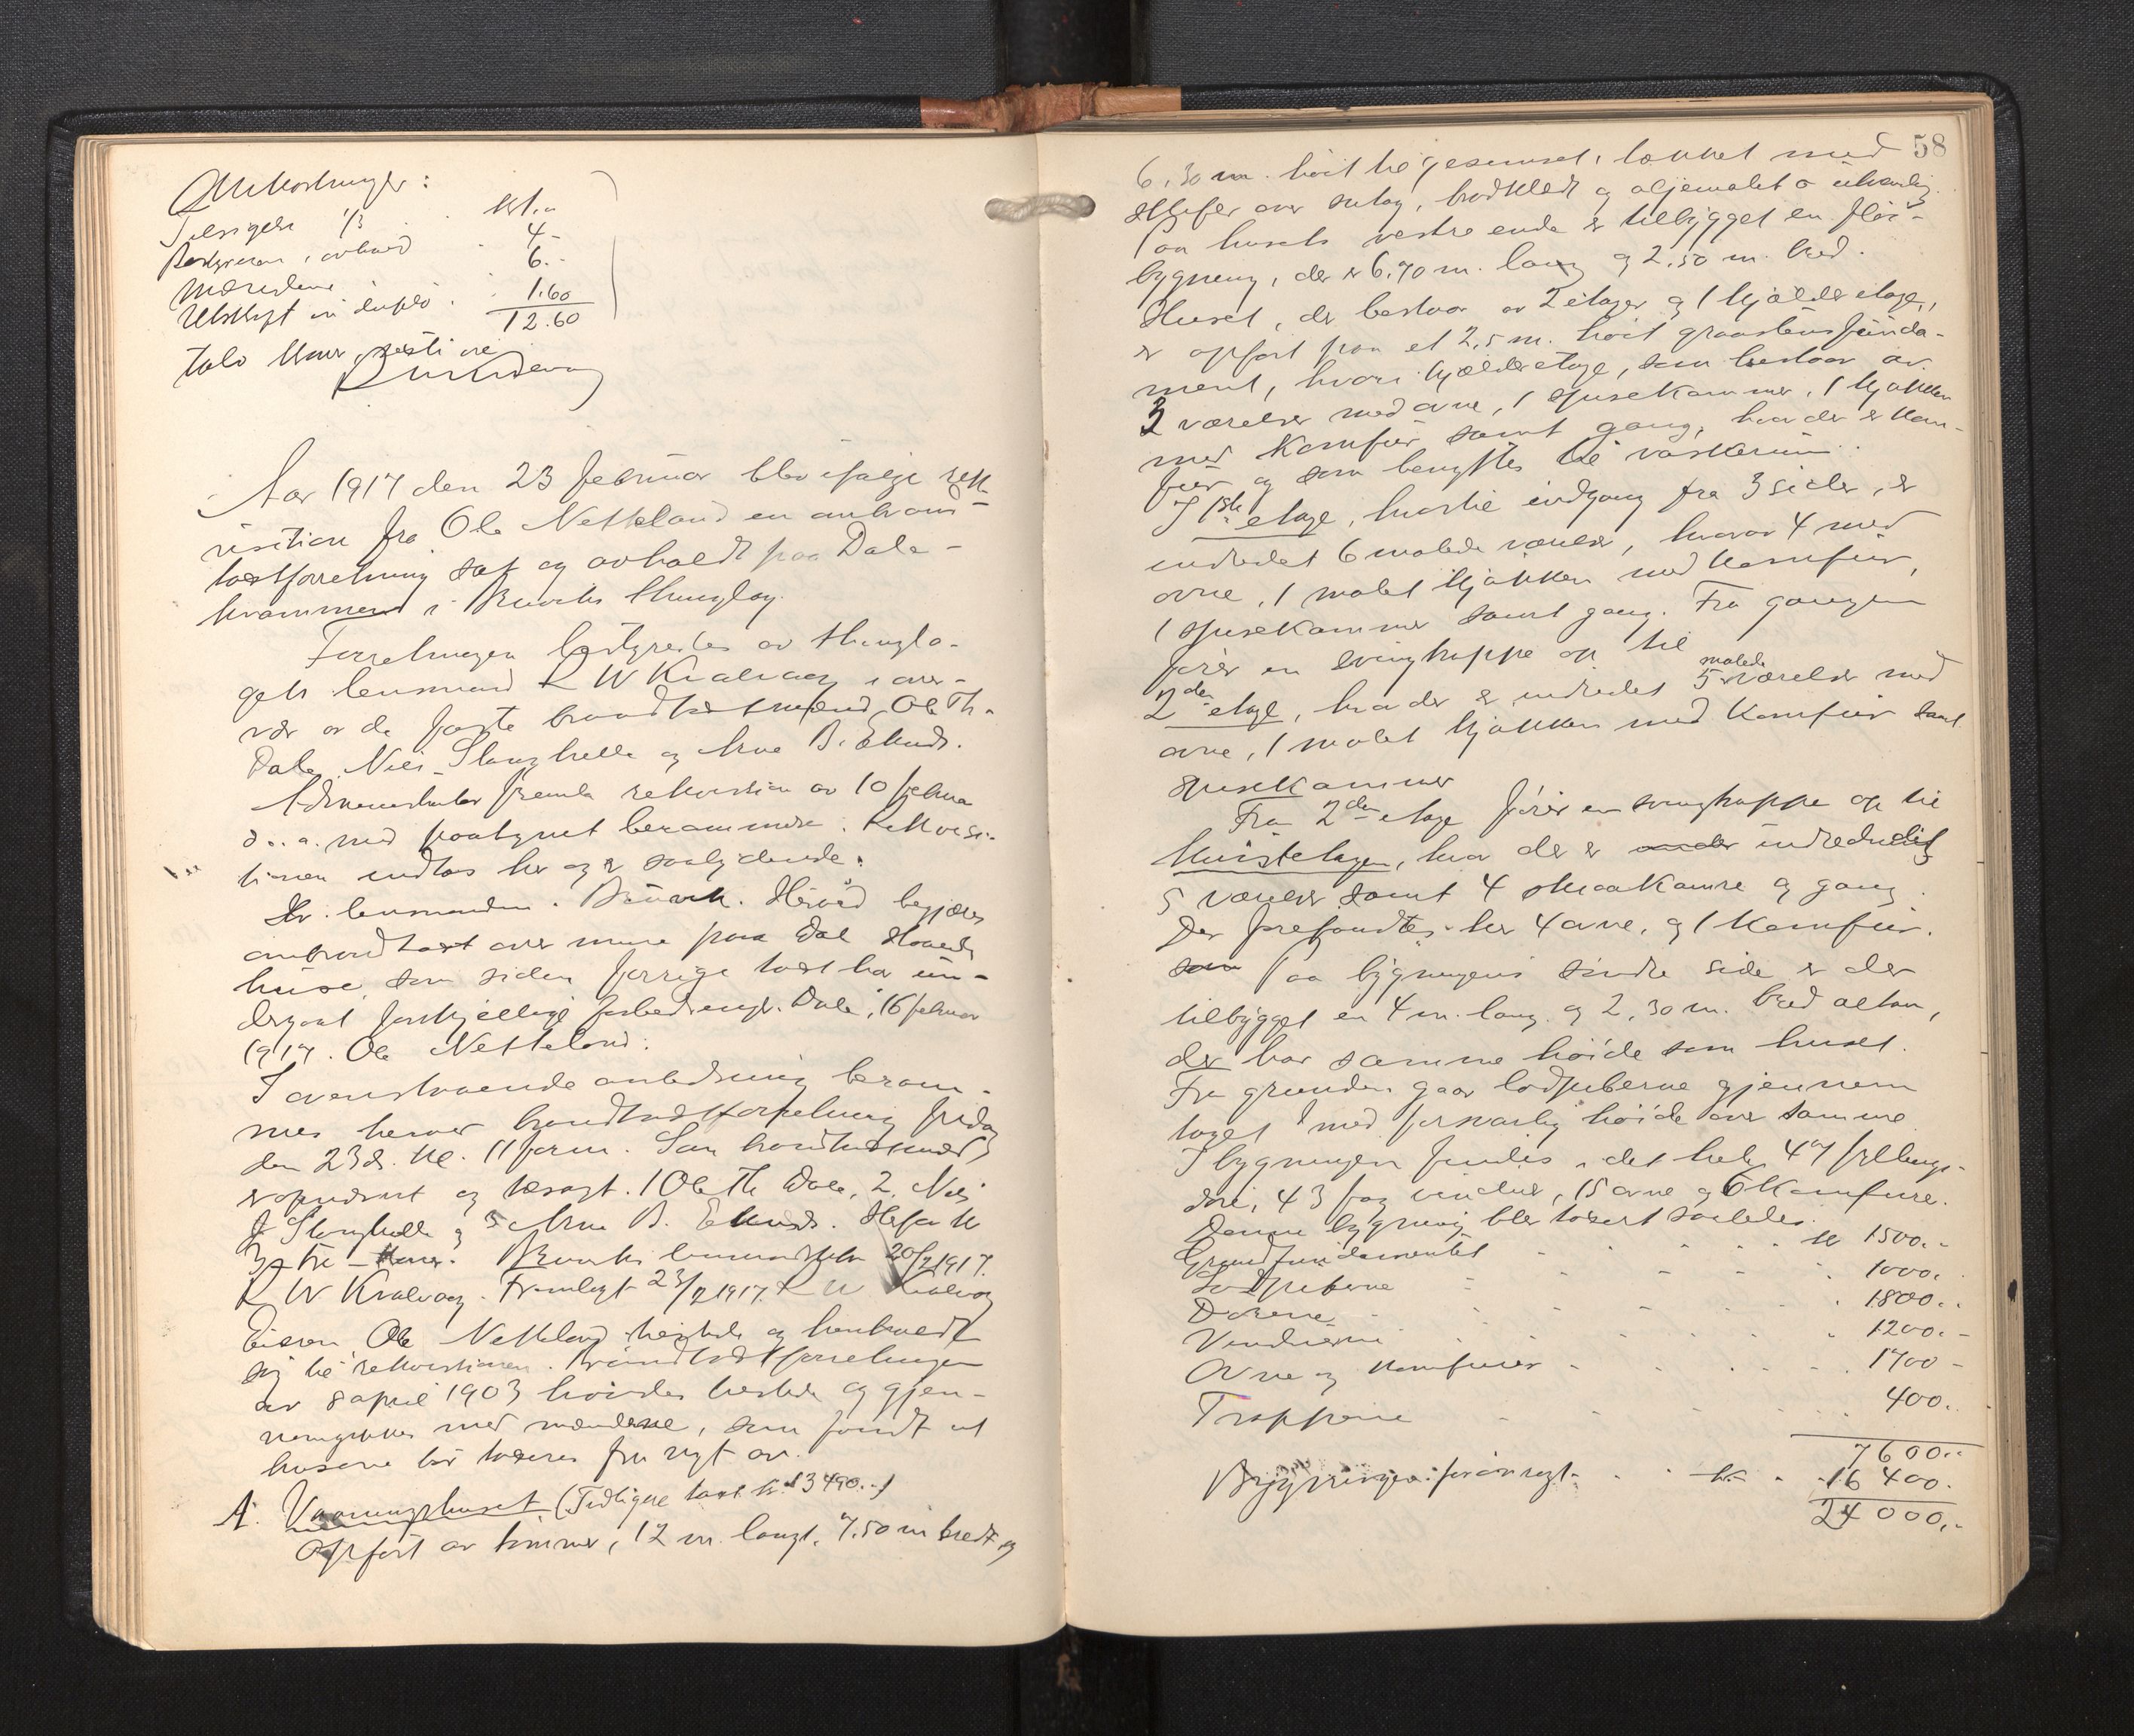 Omkostninger:
Tilsigelse 1/3 Kr 1.-
Bestyrelsen, avhold 4-
Mændene 6.-
Utskrift in duplo 1.60
12.60
tolv kroner seksti øre
Aar 1917 den 23 februar blev ifølge rek-
visition fra Ole Netteland en
takstforretning sat og avholdt paa Dale-
i Bruviks thinglag.
Forretningen bestyredes av thingla-
gets lensmand R W Kvalvaag i over-
vær av de faste brandtakstmænd, Ole Th.
Dale, Nils Slonghelle og Arne B. Eknes.
fremla rekvisition av 10 februar
d. a. med paategnet berammelse. Rekvisi-
tionen indtas her og er saalydende:
Hr. lensmanden. Bruvik. Herved begjæres
takst over mine paa Dale
huse, som siden forrige takst har un-
dergaat forskjellige forbedringer. Dale, 16 februar
1917. Ole Netteland.
I ovenstaaende anledning beram-
mes herved brandtakstforretning fredag
den 23 ds. kl. 11 form. Som brandtakstmænd
er opnævnt og tilsagt. 1 Ole Th Dale, 2, Nils
J Slonghelle og 3 Arne B. Eknes.
3 - tre - kroner. Bruviks lensmandskontor 20/2 1917.
R W Kvalvaag. Fremlagt 23/2 1917. R W Kvalvaag
Eieren, Ole Netteland tilstede og henholdt
sig til rekvisitionen. Brandtakstforretningen
av 8 april 1903 havdes tilstede og gjen-
nemgikkes med mændene, som fandt at
husene bør takseres fra nyt av.
A. Vaaningshuset (Tidligere takst kr. 13490.-)
Opført av tømmer, 12 m. langt, 7.50 m bredt og
58
6,30 m. høit til gesimset, tækket med
skifer over sutag, bordklædt og oljemalet utvendig.
Paa husets vestre ende er tilbygget en fløi-
bygning, der er 6,70 m. lang og 2,50 m. bred.
Huset, der bestaar av 2 etager og 1 kjælder etage,
er opført paa et 2,5 m. høit graastensfunda-
ment, hvori kjælderetage, som bestaar av
3 værelser med ovne, 1 spisekammer, 1 kjøkken
med komfur samt gang, hvor der er kom-
fur og som benyttes til vaskerum.
I 1ste etage, hvortil indgang fra 3 sider, er
indredet 6 malede værelser, hvorav 4 med
ovne, 1 malet kjøkken med komfur,
1 spisekammer samt gang. Fra gangen
fører en svingtrappe op til
2den etage, hvor der er indredet 5 malede værelser med
ovne, 1 malet kjøkken med komfur samt
spisekammer
Fra 2den etage fører en svingtrappe op til
kvistetagen, hvor der er indredet
5 værelser samt 4 smaakamre og gang.
Der forefandtes her 4 ovne, og 1 komfur.
Paa bygningens søndre side er der
tilbygget en 4 m. lang og 2,30 m. bred altan,
der har samme høide som huset.
Fra grunden gaar lodpiberne gjennem
taget med forsvarlig høide over samme.
I bygningen findes i det hele 47 fyllings-
døre, 43 fag vinduer, 15 ovne og 6 komfure.
Denne bygning blev taksert saaledes.
Grundfundamentet kr 1500.-
Lodpiberne 1000.
Dørene 1800.-
Vinduerne 1200.-
Ovne og komfurer 1700-
Trapperne 400.-
7600.-
Bygningen forøvrigt kr. 16 400.
24 000.-